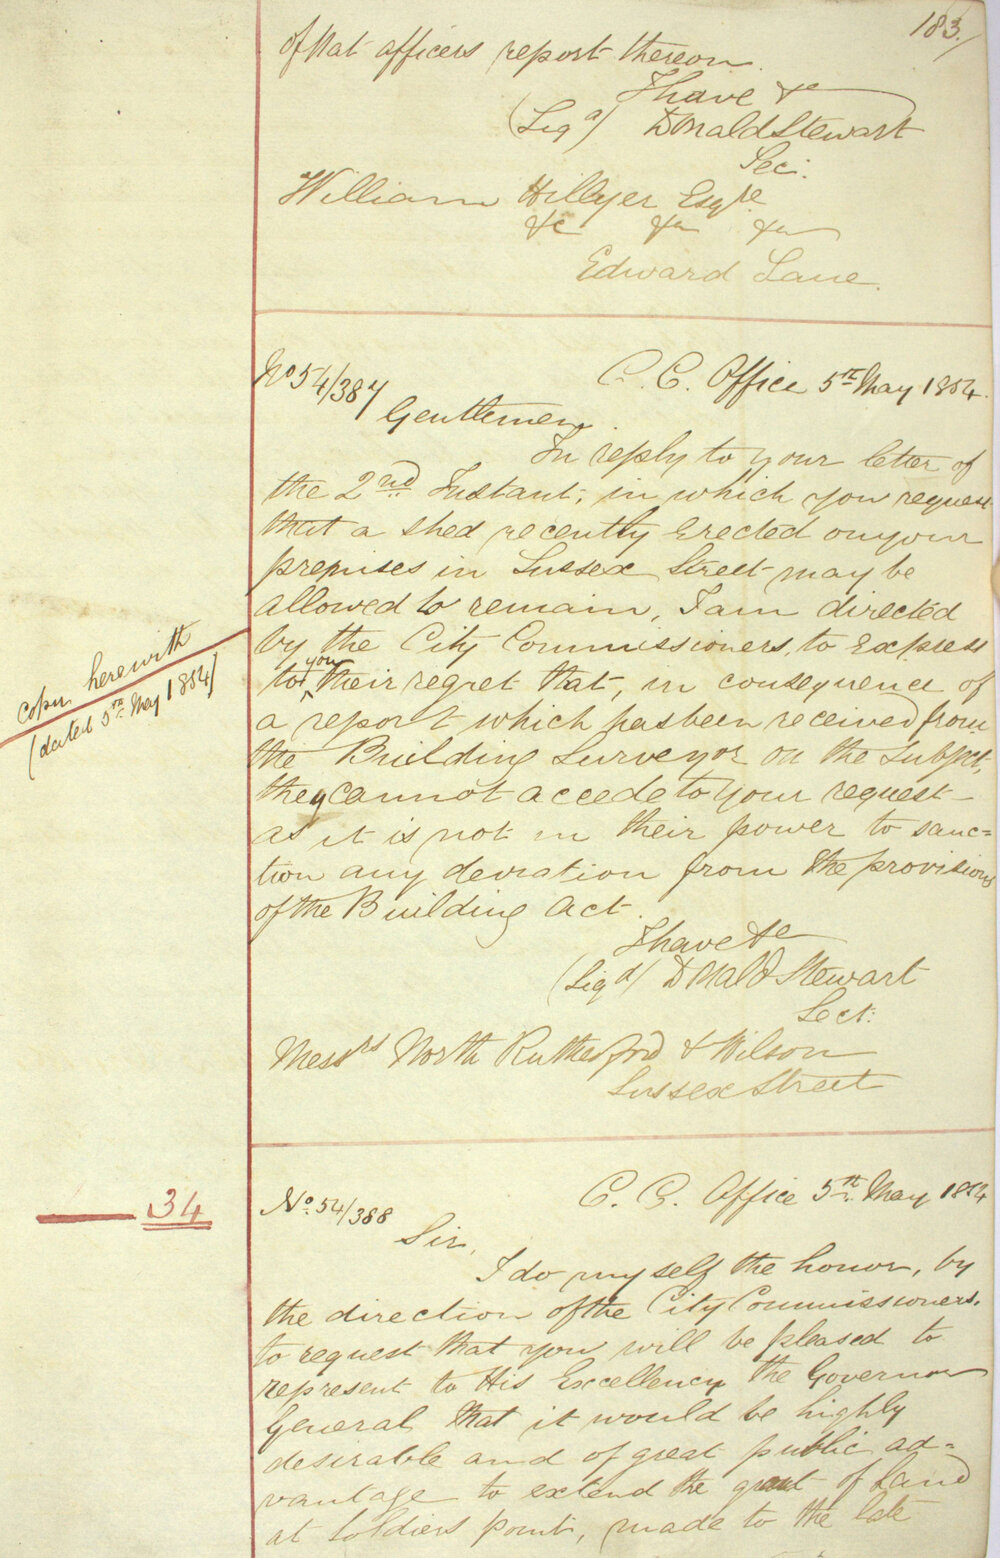 183.
of that officers report thereon.
I have &c
(Sigd) Donald Stewart
Sec:
William Hillyer Esqre
&c &c &c
Edward Lane.
No 54/387
C. C. Office 5th May 1854.
Gentlemen,
In reply to your letter of
the 2nd Instant, in which you request
that a shed recently Erected on your
premises in Sussex Street may be
allowed to remain, I am directed
by the City Commissioners, to Express
to you their regret that, in consequence of
a report which has been received from
the Building Surveyor on the subject,
they cannot accede to your request
as it is not in their power to sanc=
tion any deviation from the provisions
of the Building Act.
copy herewith
(dated 5th May 1854)
I have &c
(Sigd) Donald Stewart
Sect:
Messrs North Rutherford & Wilson
Sussex Street
34
No. 54/388
C. C. Office 5th May 1854
Sir,
I do myself the honor, by
the direction of the City Commissioners,
to request that you will be pleased to
represent to His Excellency the Governor
General that it would be highly
desirable and of great public ad=
vantage to extend the grant of Land
at Soldiers point, made to the late